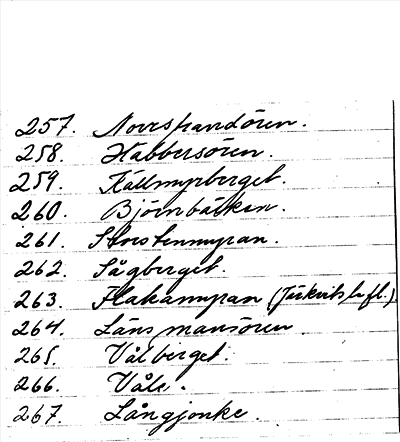 257. Norrstrandören.
258. Habbersören.
259. Källmyrberget.
260. Björnbäcken.
261. Storstenmyran.
262. Sågberget.
263. Flakamyran (
264. Länsmansören.
265. Vålberget.
266. Våle.
267. Långjonke.